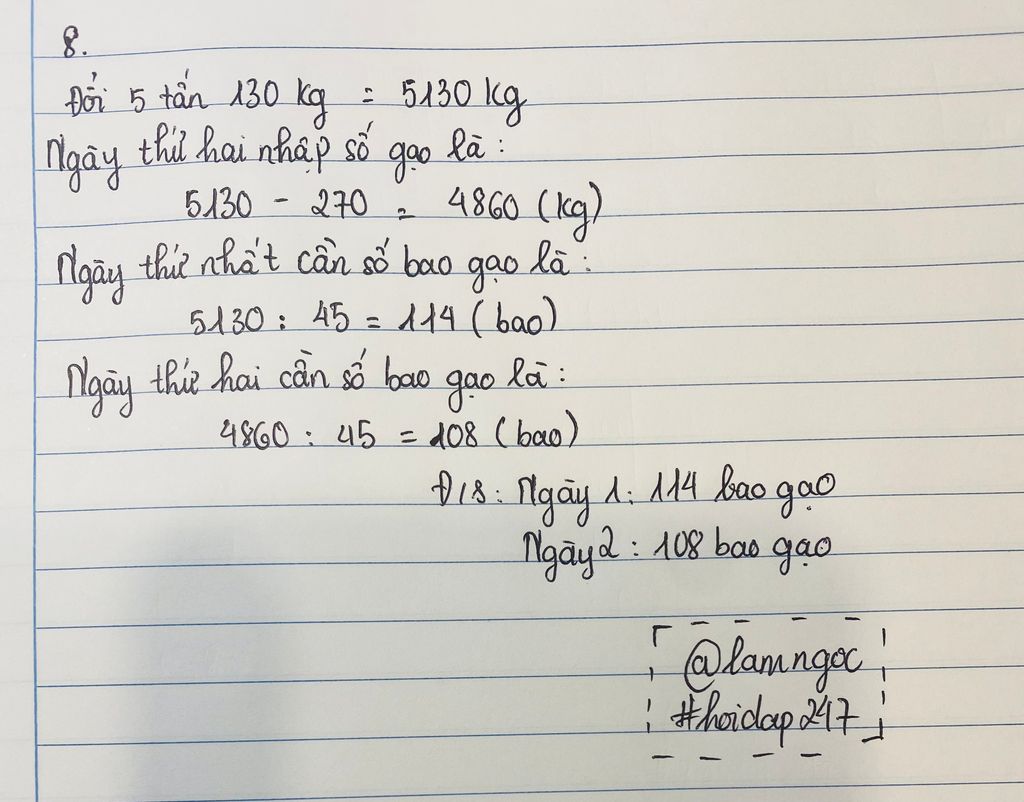 8.
Đổi 5 tấn 130 kg = 5130 kg
Ngày thứ hai nhập số gạo là :
5130 - 270 = 4860 (kg)
Ngày thứ nhất cần số bao gạo là :
5130 : 45 = 114 ( bao)
Ngày thứ hai cần số bao gạo là :
4860 : 45 = 108 ( bao)
Đ/s : Ngày 1 : 114 bao gạo
Ngày 2 : 108 bao gạo
@lamngoc
#hoidap247